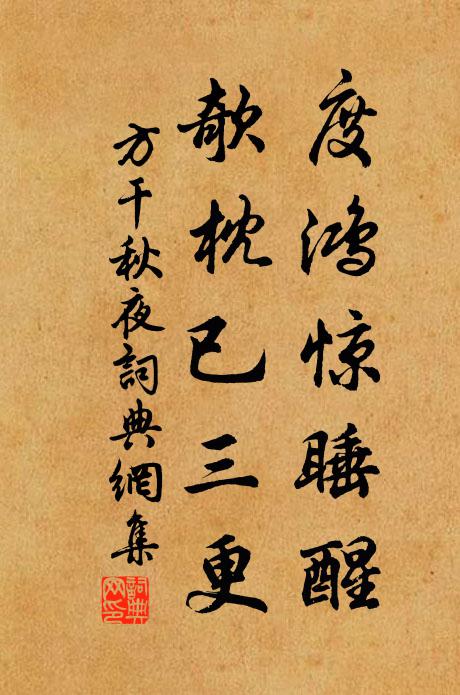 度鸿惊睡醒
欹枕已三更
方干秋夜詞典網集
詞典
网印